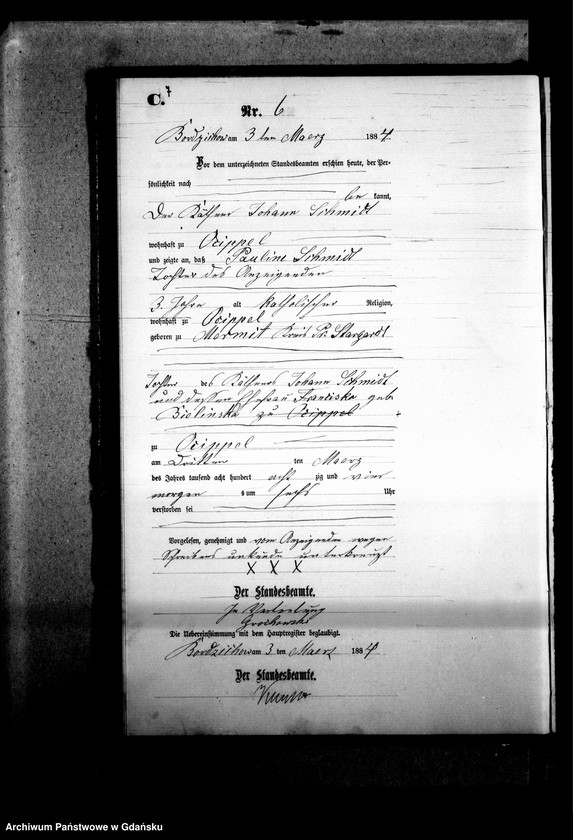 C. 7
Nr. 6
Bordzichow am 3 ten Maerz 1884
Vor dem unterzeichneten Standesbeamten erschien heute, der Per-
sönlichkeit nach
be kannt,
Der Käthner Johann Schmidt
wohnhaft zu Ocippel
und zeigte an, daß Pauline Schmidt
Tochter des Anzeigenden
3 Jahre alt katholischer Religion,
wohnhaft zu Ocippel
geboren zu Mermet Kreis Pr. Stargardt
Tochter des Käthners Johann Schmidt
und dessen Ehefrau Franciska geb
Bielinska zu Ocippel
zu Ocippel
am Dritten ten Maerz
des Jahres tausend acht hundert acht zig und vier
morgens um sechs Uhr
verstorben sei
Vorgelesen, genehmigt und vom Anzeigenden wegen
Schreibens unkunde unterkreuzt
X X X
Der Standesbeamte.
In Vertretung
Grochowski
Die Uebereinstimmung mit dem Hauptregister beglaubigt.
Bordzichow am 3 ten Maerz 1884
Der Standesbeamte.
Archiwum Państwowe w Gdańsku